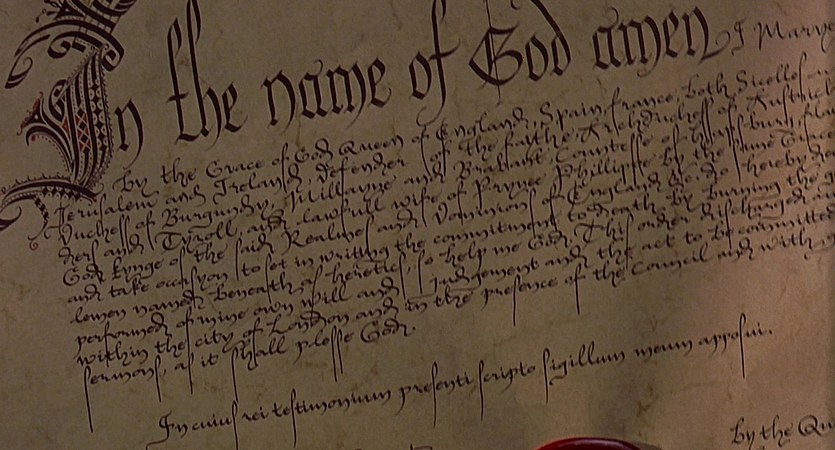 In the name of God amen, I Marye
By the Grace of God Queen of England, Spain, france, both Sicelles
Jerusalem and Ireland, defender of the faithe, Archduchess of Austrich
Duchess of Burgundy, Millayne and Brabant, Countesse of hapsburg, flan
ders and Tyroll, and lawfull wife of Prynce Phillippe by the same
God kynge of the said Realmes and Dominions of England &c. do hereby
and take occasyon to set in writing the commitment to death by burning the
lemen named beneath as heretics, so help me God. This order discharged and
performed of mine own will and Judgement and the act to be committed
within the city of London and in the presence of the Council and with
sermons, as it shall plesse God.
In cuius rei testimonium presenti scripto sigillum meum apposui.
By the Qu